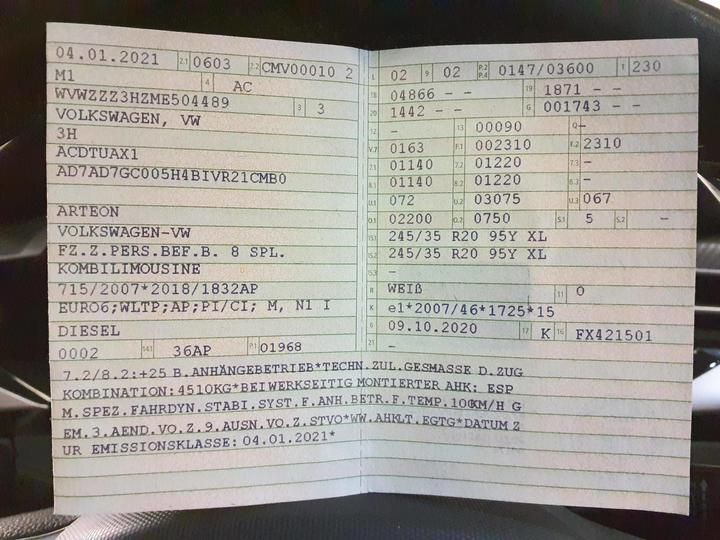 04.01.2021 2.1 0603 2.2 CMV00010 2
M1 4 AC
WVWZZZ3HZME504489 3 3
VOLKSWAGEN, VW
3H
ACDTUAX1
AD7AD7GC005H4BIVR21CMB0
ARTEON
VOLKSWAGEN-VW
FZ.Z.PERS.BEF.B. 8 SPL.
KOMBILIMOUSINE
715/2007*2018/1832AP
EURO6;WLTP;AP;PI/CI; M, N1 I
DIESEL
0002 14.1 36AP P.1 01968
L 02 9 02 P.2 P.4 0147/03600 T 230
18 04866 - - 19 1871 - -
20 1442 - - G 001743 - -
12 - 13 00090 Q -
V.7 0163 F.1 002310 F.2 2310
7.1 01140 7.2 01220 7.3 -
8.1 01140 8.2 01220 8.3 -
U.1 072 U.2 03075 U.3 067
O.1 02200 O.2 0750 S.1 5 S.2 -
15.1 245/35 R20 95Y XL
15.2 245/35 R20 95Y XL
15.3 -
R WEIß 11 0
K e1*2007/46*1725*15
6 09.10.2020 17 K 16 FX421501
21 -
7.2/8.2:+25 B.ANHÄNGEBETRIEB*TECHN.ZUL.GESMASSE D.ZUG
KOMBINATION:4510KG*BEI WERKSEITIG MONTIERTER AHK: ESP
M.SPEZ.FAHRDYN.STABI.SYST.F.ANH.BETR.F.TEMP.100KM/H G
EM.3.AEND.VO.Z.9.AUSN.VO.Z.STVO*WW.AHKLT.EGTG*DATUM Z
UR EMISSIONSKLASSE: 04.01.2021*